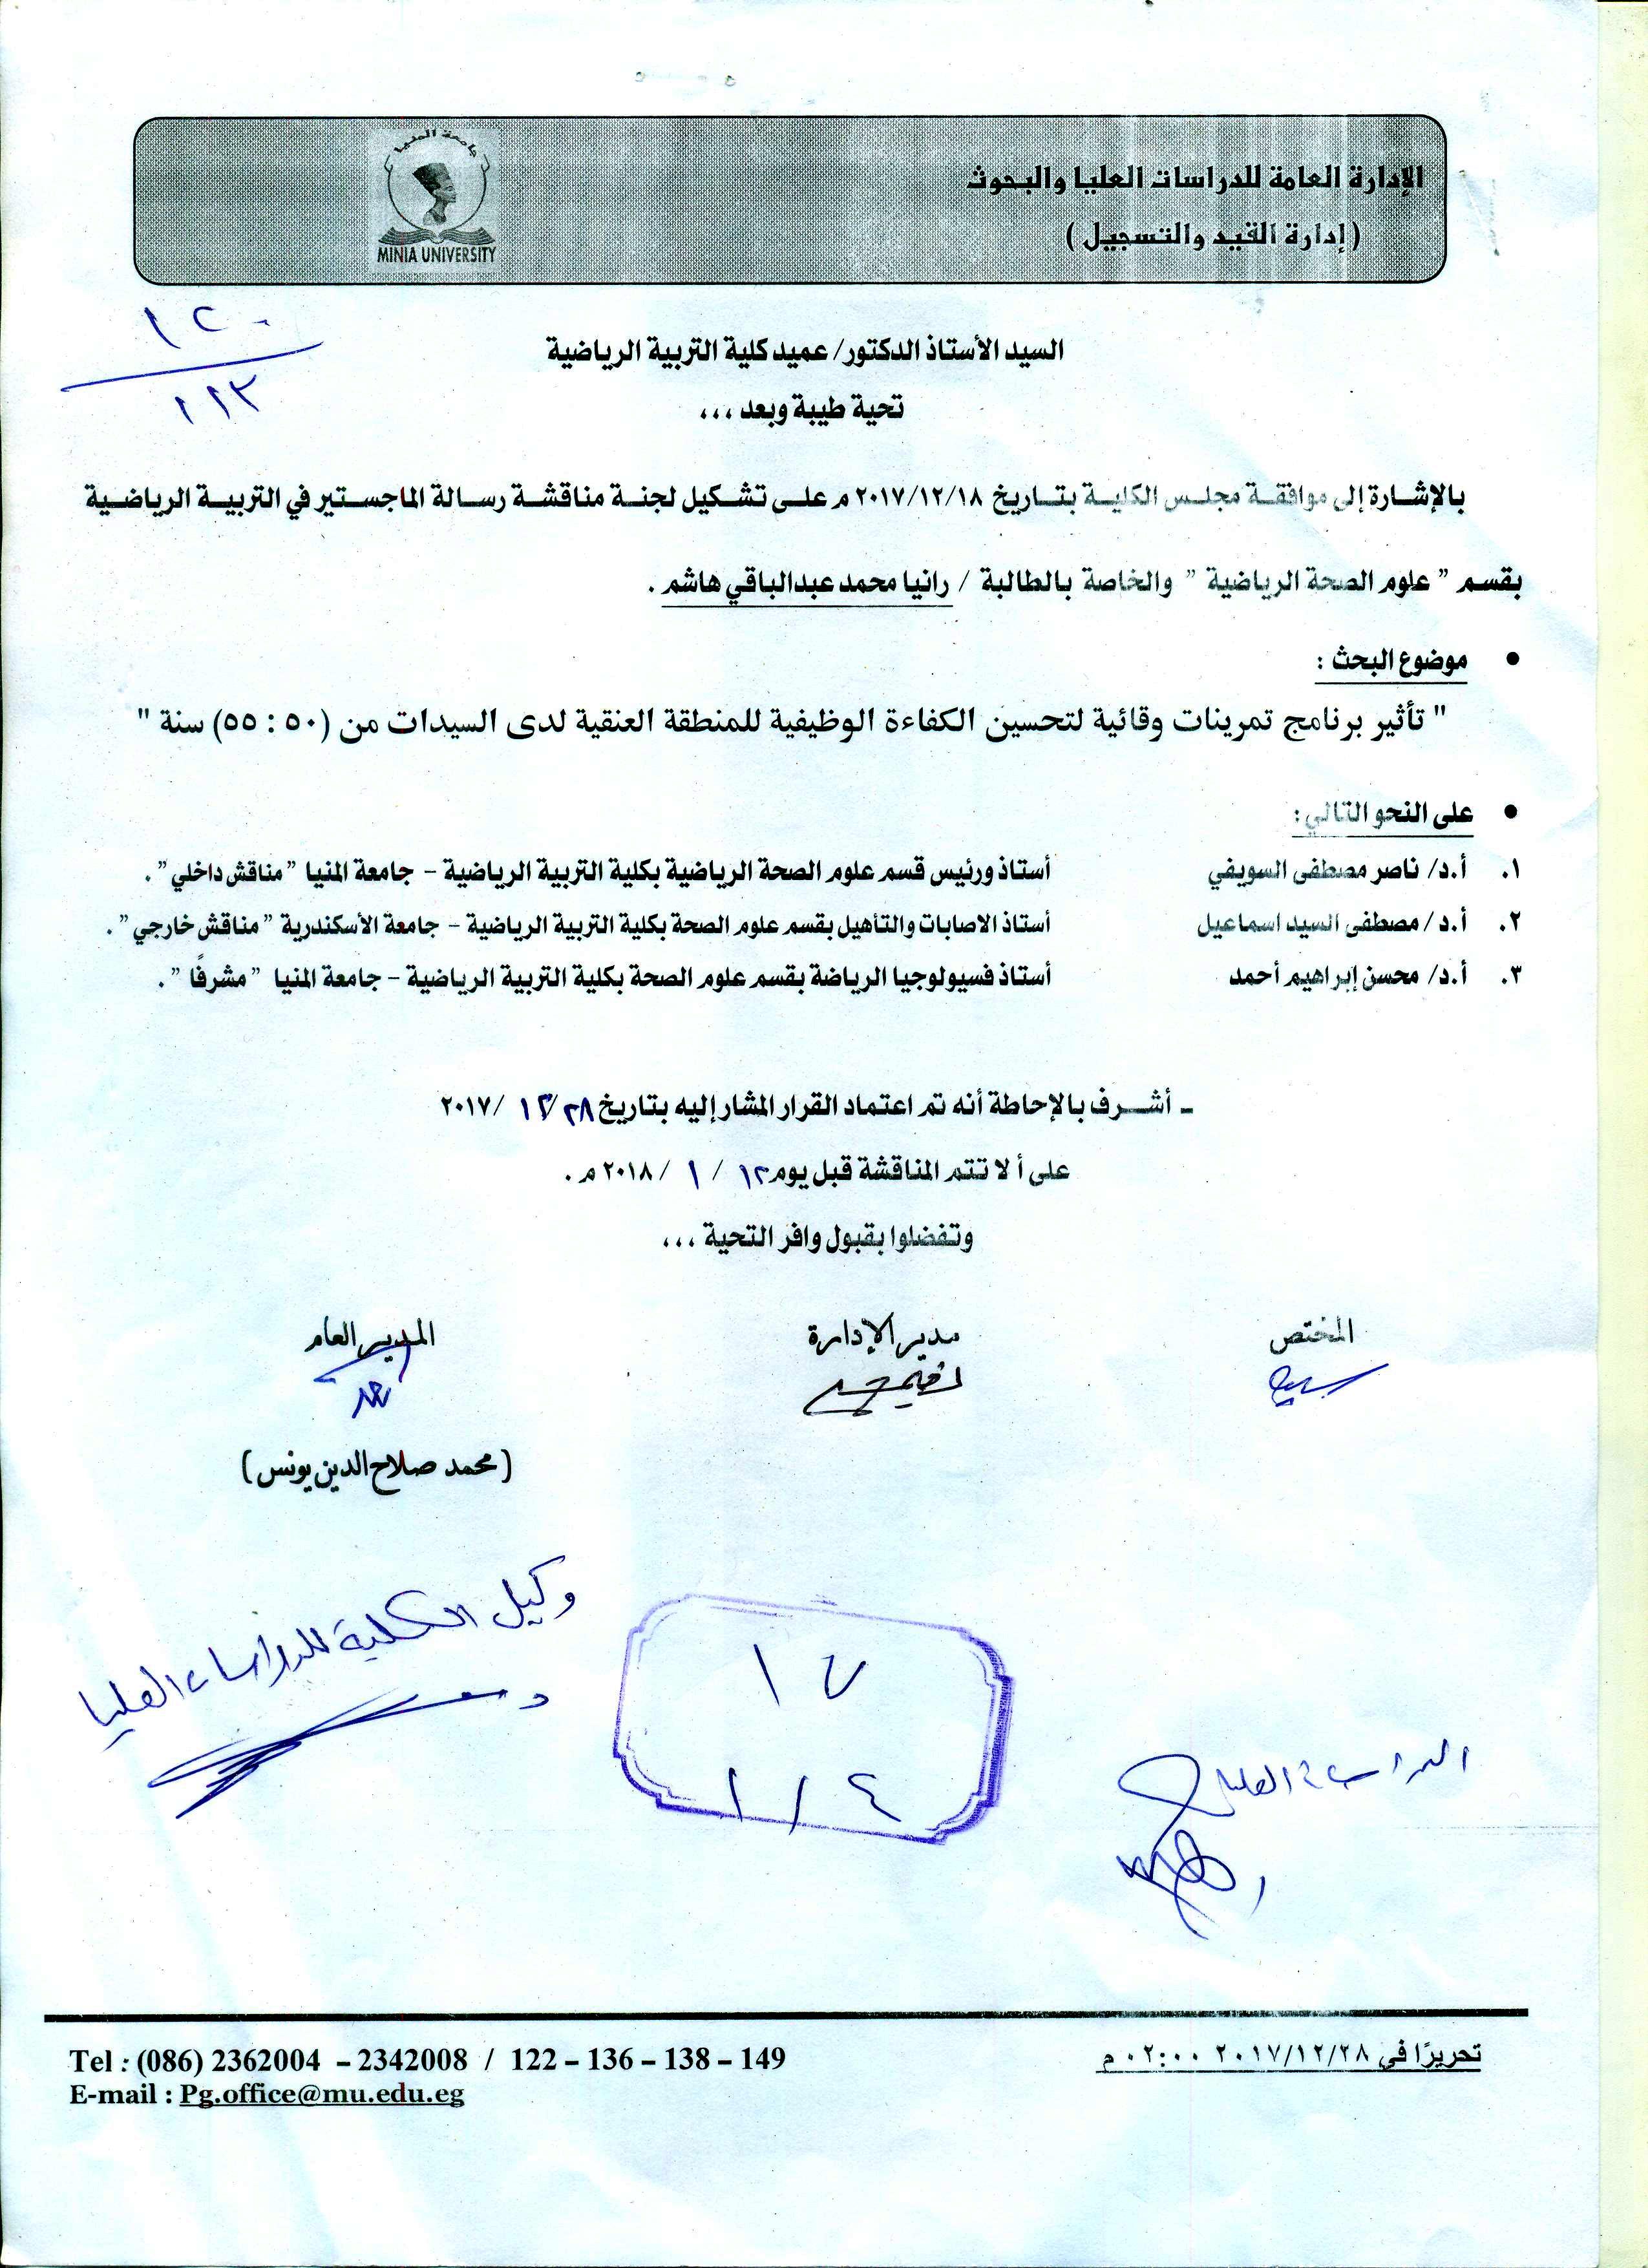 جامعة المنيا
MINIA UNIVERSITY
الإدارة العامة للدراسات العليا والبحوث
(إدارة القيد والتسجيل)
١٢٠
١١٣
السيد الأستاذ الدكتور/ عميد كلية التربية الرياضية
تحية طيبة وبعد ،،،
بالإشارة إلى موافقة مجلس الكلية بتاريخ ٢٠١٧/١٢/١٨ م على تشكيل لجنة مناقشة رسالة الماجستير في التربية الرياضية
بقسم " علوم الصحة الرياضية " والخاصة بالطالبة / رانيا محمد عبدالباقي هاشم .
• موضوع البحث :
" تأثير برنامج تمرينات وقائية لتحسين الكفاءة الوظيفية للمنطقة العنقية لدى السيدات من (٥٠ : ٥٥) سنة "
• على النحو التالي :
١. أ.د/ ناصر مصطفى السويفي أستاذ ورئيس قسم علوم الصحة الرياضية بكلية التربية الرياضية – جامعة المنيا " مناقش داخلي " .
٢. أ.د/ مصطفى السيد اسماعيل أستاذ الاصابات والتأهيل بقسم علوم الصحة بكلية التربية الرياضية – جامعة الأسكندرية " مناقش خارجي " .
٣. أ.د/ محسن إبراهيم أحمد أستاذ فسيولوجيا الرياضة بقسم علوم الصحة بكلية التربية الرياضية – جامعة المنيا " مشرفًا " .
ـ أشرف بالإحاطة أنه تم اعتماد القرار المشار إليه بتاريخ ٢٨/ ١٢/ ٢٠١٧
على ألا تتم المناقشة قبل يوم ١٢ / ١ / ٢٠١٨ م .
وتفضلوا بقبول وافر التحية ،،،
المختص مدير الإدارة المدير العام
(محمد صلاح الدين يونس)
وكيل الكلية للدراسات العليا
١٧
١/٤
الدراسات العليا
تحريرًا في ٢٠١٧/١٢/٢٨ ٠٢:٠٠ م
Tel : (086) 2362004 – 2342008 / 122 – 136 – 138 – 149
E-mail : Pg.office@mu.edu.eg